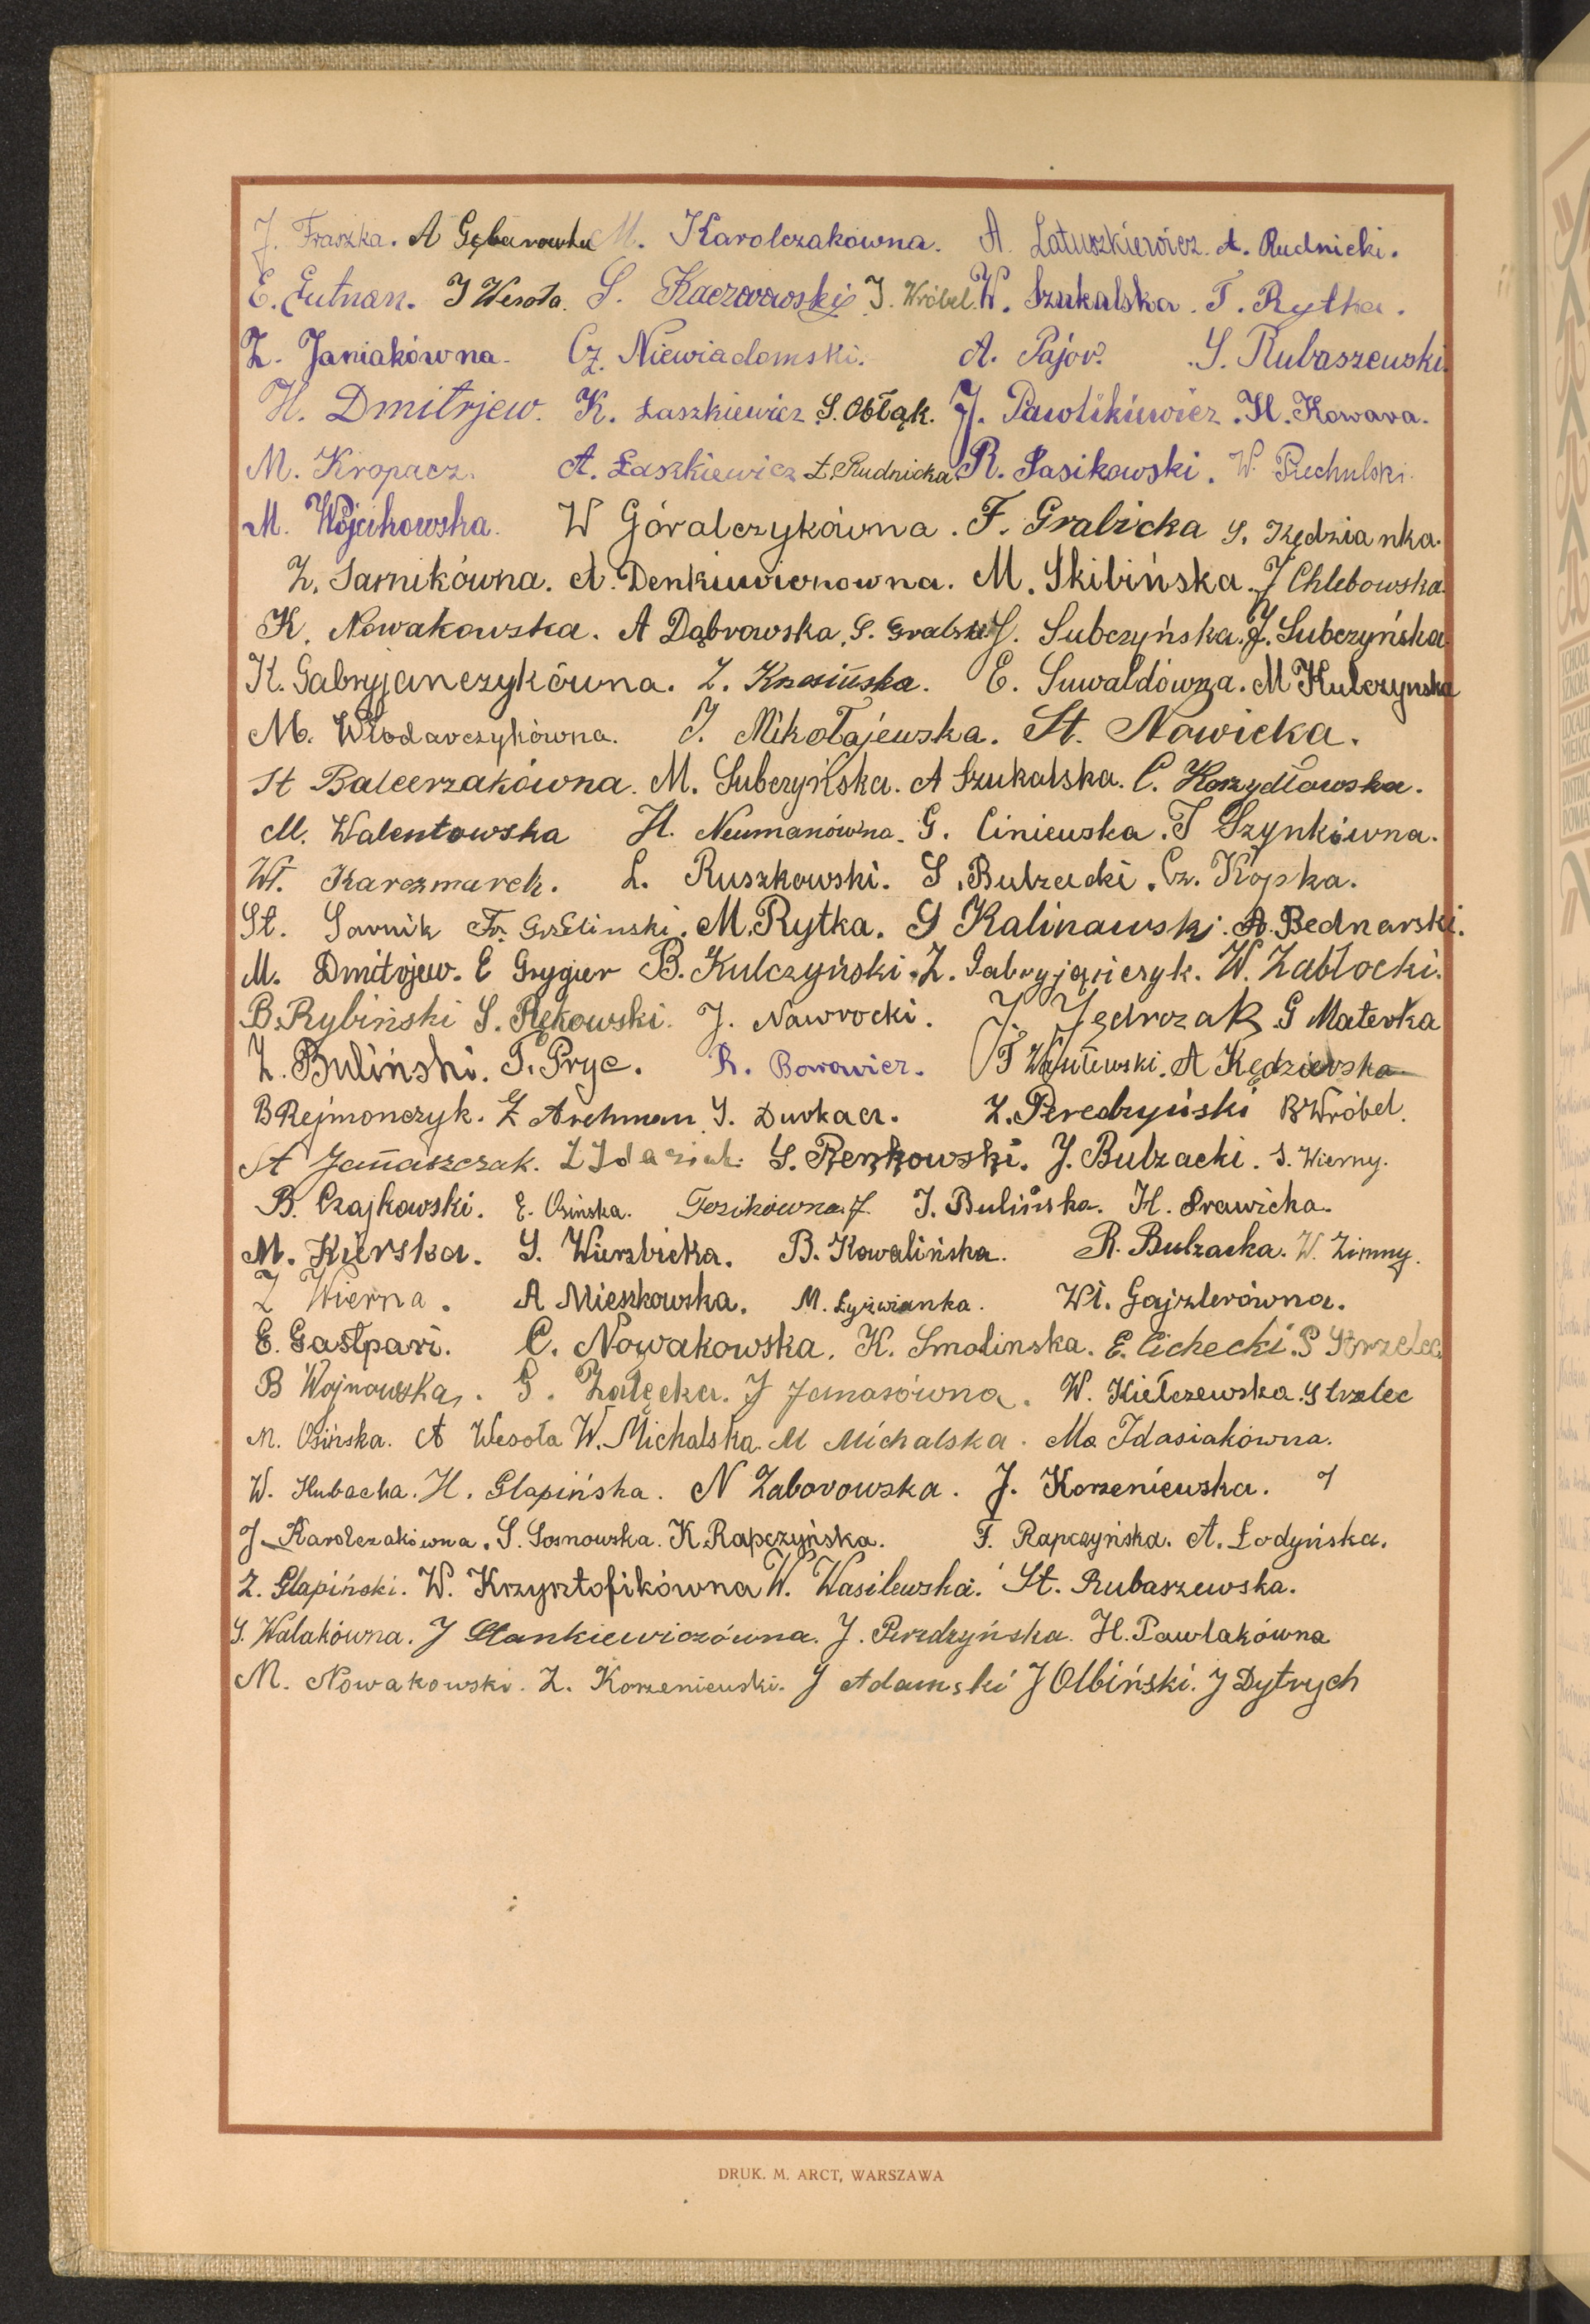 J. Fraszka. A Gębarowska M. Karolczakówna. A. Latuszkiewicz. A. Rudnicki.
E. Gutnan. J Wesoła. S. Kaczorowski J. Wróbel. W. Szukalska. T. Rytka.
Z. Janiakówna. Cz. Niewiadomski. A. Pajor. S. Rubaszewski.
H. Dmitrjew. K. Łaszkiewicz S. Obłąk. J. Pawlikiewicz. H. Kowara.
M. Kropacz. A. Łaszkiewicz Z. Rudnicka R. Pasikowski. W. Piechulski.
M. Wójcikowska. W Góralczykówna. F. Gralicka S. Kędzianka.
Z. Sarnikówna. A. Denkiewiczowna. M. Skibińska. J Chlebowska.
K. Nowakowska. A Dąbrowska. S. Gralska J. Subczyńska. J. Subczyńska.
K. Gabryjanczykówna. Z. Krasińska. E. Suwaldówna. M Kulczynska
M. Włodarczykówna. J. Mikołajewska. St. Nowicka.
St Balcerzakówna. M. Subczyńska. A Szukalska. C. Korzydłowska.
M. Walentowska H. Neumanówna. G. Ciniewska. T Szynkówna.
Wł. Karczmarek. L. Ruszkowski. S. Bulzacki. Cz. Kopka.
St. Sarnik Fr. Grelinski. M. Rytka. S Kalinawski. A. Bednarski.
M. Dmitrjew. E Grygier B. Kulczyński. Z. Gabryjączyk. W. Zabłocki.
B. Rybiński S. Rękowski. J. Nawrocki. J Jędrczak G Materka
Z. Buliński. T. Pryc. R. Borowicz. T Wasilewski. A Kędzierska
B Rejmonczyk. Z Archman J. Durkacz. Z. Peredzyński B Wróbel.
St Janaszczak. Z Idasiak. S. Renkowski. J. Bulzacki. S. Wierny.
B. Czajkowski. E. Osińska. Tosikówna J. J. Bulińska. H. Prawicka.
M. Kierska. S. Wierzbicka. B. Kowalińska. R. Bulzacka. W. Zimny.
Z Wierna. A Mieszkowska. M. Łyżwianka. Wł. Gajzlerówna.
E. Gastpari. C. Nowakowska. K. Smolinska. E. Cichecki. S Strzelec
B Wojnowska. G. Załęcka. J Jamasówna. W. Kiełczewska. Strzelec
M. Osińska. A Wesoła W. Michalska. M Michalska. Ma. Idasiakówna.
W. Kubacka. H. Glapińska. N Zaborowska. J. Korzeniewska. J
J. Karolczakówna. S. Sosnowska. K. Rapczyńska. F. Rapczyńska. A. Łodyńska.
Z. Glapiński. W. Krzysztofikówna W. Wasilewska. St. Rubaszewska.
S. Walakówna. J Stankiewiczówna. J. Peredzyńska. H. Pawlakówna
M. Nowakowski. Z. Korzeniewski. J Adamski J Olbiński. J Dytrych
DRUK. M. ARCT, WARSZAWA